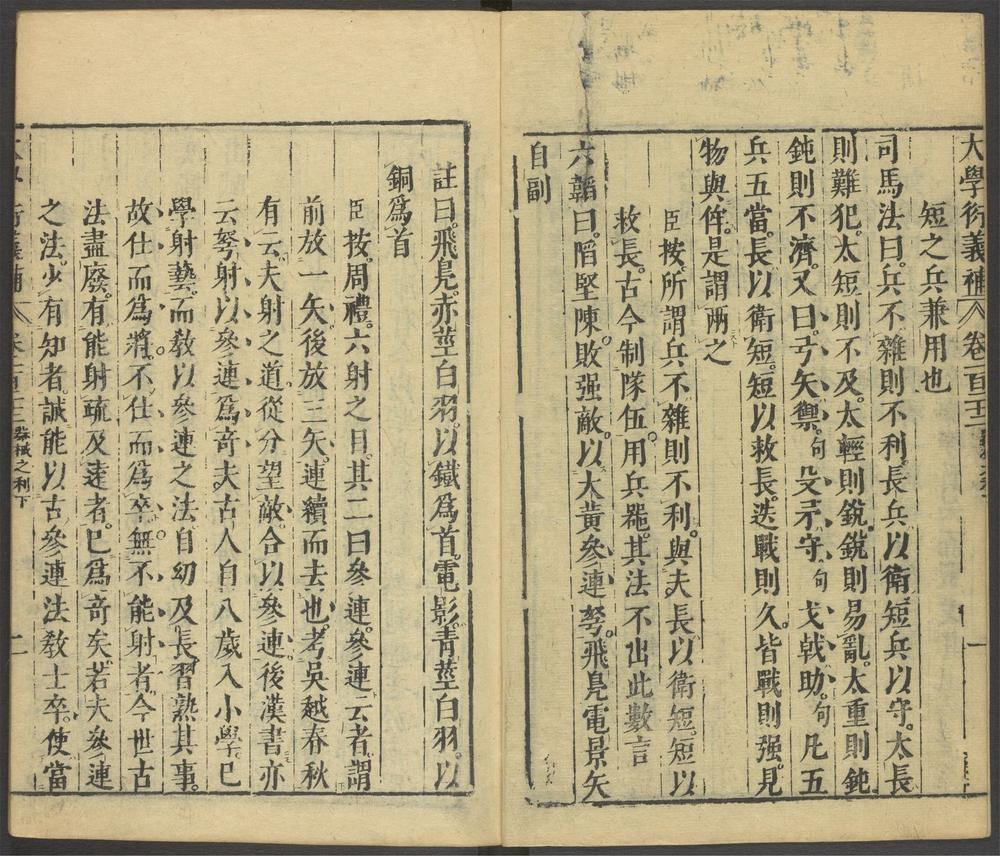 大學衍義補 卷一百二十二
短之兵兼用也
司馬法曰兵不雜則不利長兵以衛短兵以守太長
則難犯太短則不及太輕則銳銳則易亂太重則鈍
鈍則不濟又曰弓矢禦句殳矛守句戈戟助句凡五
兵五當長以衛短短以救長迭戰則久皆戰則强見
物與侔是謂兩之
臣按所謂兵不雜則不利與夫長以衛短短以
救長古今制隊伍用兵器其法不出此數言
六韜曰陷堅陳敗强敵以大黃參連弩飛鳧電景矢
自副
一
註曰飛鳧赤莖白羽以鐵爲首電影青莖白羽以
銅爲首
臣按周禮六射之目其二曰參連參連云者謂
前放一矢後放三矢連續而去也考吳越春秋
有云夫射之道從分望敵合以參連後漢書亦
云弩射以參連爲奇夫古人自八歲入小學已
學射藝而敎以參連之法自幼及長習熟其事
故仕而爲將不仕而爲卒無不能射者今世古
法盡廢有能射疏及遠者已爲奇矣若夫參連
之法少有知者誠能以古參連法敎士卒使當
器械之利下
二